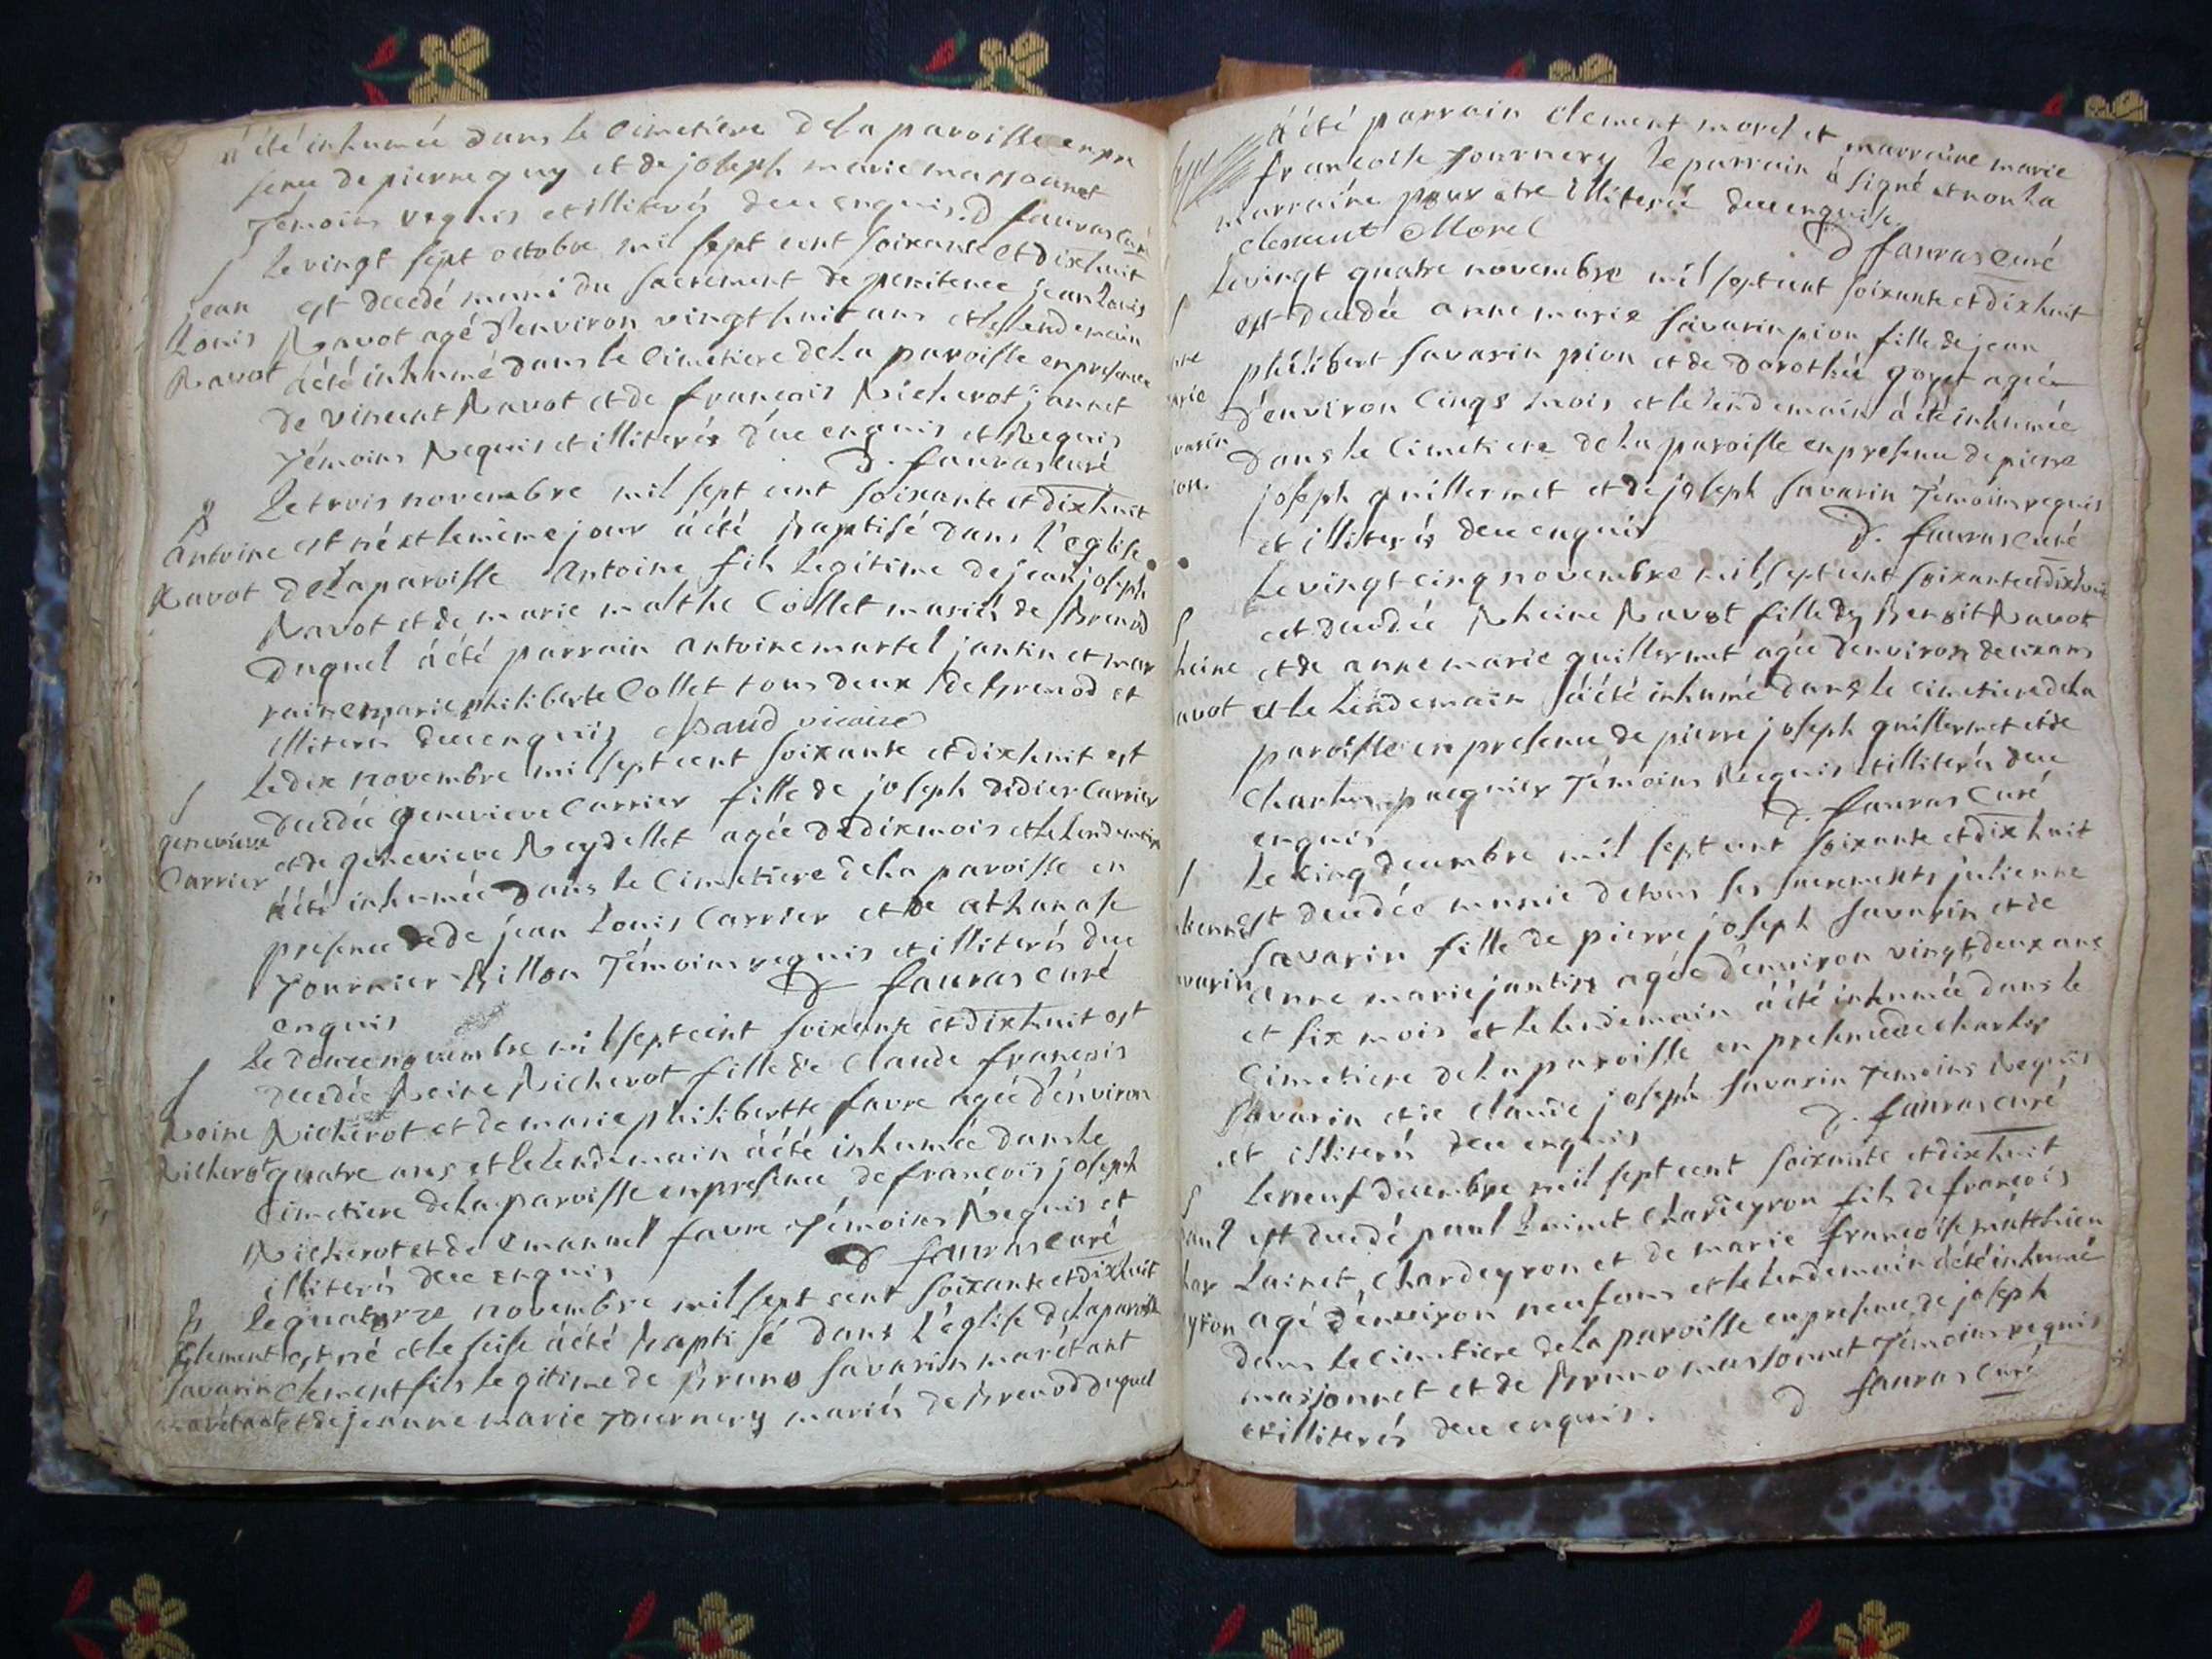 á été inhumée dans le cimetiere de la paroisse en pre
sence de pierre guy et de joseph marie massonnet
Témoins requis et illiterés deue enquis. D fauras curé
Le vingt sept octobre mil sept cent soixante et dixhuit
jean est decedé muni du sacrement de penitence jean Louis
Louis Ravot agé d'environ vingt huit ans et le lendemain
Ravot á été inhumé dans le cimetiere de La paroisse en presence
de vincent Ravot et de francois Richerot jannet
Témoins Requis et illiterés deue enquis et Requis
D. fauras curé
Le trois novembre mil sept cent soixante et dixhuit
antoine est né et le même jour á été Baptisé dans L'eglise
Ravot de La paroisse Antoine fils Legitime de jean joseph
Ravot et de marie mathe Collet mariés de Brenod
duquel á été parrain antoine martel jantin et mar
raine marie philiberte Collet tous deux de Brenod et
illiterés deue enquis vicaire
Le dix novembre mil sept cent soixante et dixhuit est
decedée genevieve Carrier fille de joseph didier Carrier
genevieve et de genevieve Reydellet agée de dix mois et le lendemain
Carrier á été inhumée dans le Cimetiere de la paroisse en
presence de jean Louis Carrier et de athanase
Tournier Billon Témoins requis et illiterés deue
enquis D fauras curé
Le douze novembre mil sept cent soixante et dixhuit est
decedée Reine Richerot fille de Claude francois
Reine Richerot et de marie philibertte favre agée d'environ
Richerot quatre ans et le lendemain á été inhumée dans le
Cimetiere de La paroisse en presence de francois joseph
Richerot et de Emanuel favre Témoins Requis et
illiterés deue enquis D fauras curé
B Le quatorze novembre mil sept cent soixante et dixhuit
Clement est né et le seise á été Baptisé dans L'église de la paroisse
savarin Clement fils Legitime de Bruno savarin marétant
marétant et de jeanne marie Tournery mariés de Brenod duquel
á été parrain clement morel et marraine marie
francoise Tournery Le parrain á signé et non La
marraine pour etre illiterée deue enquise
clement Morel D fauras curé
Le vingt quatre novembre mil sept cent soixante et dixhuit
est decedée anne marie savarin pion fille de jean
philibert savarin pion et de Dorothée goyet agée
arie d'environ Cinqs mois et le lendemain á été inhumée
varin dans le Cimetiere de La paroisse en presence de pierre
ion. joseph guillermet et de joseph savarin Témoins requis
et illiterés deue enquis D. fauras curé
Le vingt cinq novembre mil sept cent soixante et dixhuit
est decedée Rheine Ravot fille de Benoit Ravot
heine et de anne marie guillermet agée d'environ deux ans
avot et le Lendemain á été inhumé dans le cimetiere de La
paroisse en presence de pierre joseph guillermet et de
Charles Témoins Requis et illiterés deue
enquis D. fauras Curé
Le Cinq decembre mil sept cent soixante et dix huit
est decedée munie de tous ses sacrements julienne
savarin fille de pierre joseph savarin et de
avarin anne marie jantin agée d'environ vingt deux ans
et six mois et le lendemain á été inhumée dans le
Cimetiere de La paroisse en presence de Charles
Savarin et de Claude joseph savarin Temoins Requis
et illiterés deue enquis D. fauras curé
Le neuf decembre mil sept cent soixante et dixhuit
aul est decedé paul Lainet Chardeyron fils de francois
har Lainet Chardeyron et de marie francoise matthieu
yron agé d'environ neuf ans et le lendemain á été inhumé
dans Le cimetiere de La paroisse en presence de joseph
massonnet et de Bruno massonnet Témoins requis
et illiterés deue enquis. D fauras Curé